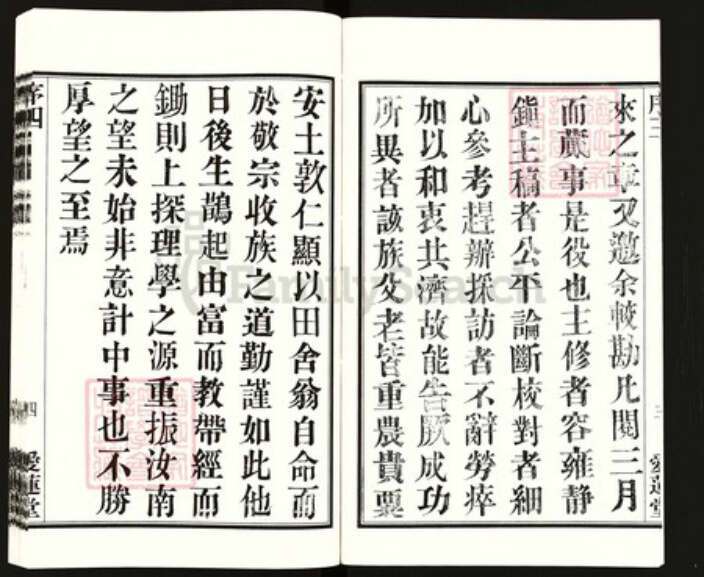 序三
來之章又邀余較勘凡閱三月
而蕆事是役也主修者容雍靜
鎮主稿者公平論斷校對者細
心參考趕辦採訪者不辭勞瘁
加以和衷共濟故能告厥成功
所異者該族父老皆重農貴粟
三
愛蓮堂
安土敦仁顯以田舍翁自命而
於敬宗收族之道勤謹如此他
日後生鵲起由富而教帶經而
鋤則上探理學之源重振汝南
之望未始非意計中事也不勝
厚望之至焉
序四
四
愛蓮堂
FamilySearch